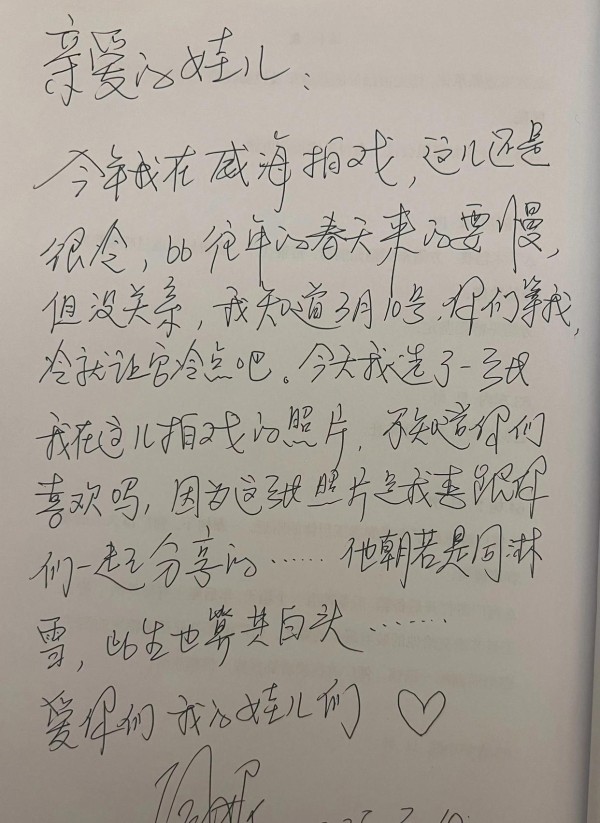 亲爱的娃儿：
今年我在威海拍戏，这儿还是
很冷，比往年的春天来的要慢，
但没关系，我知道3月10号，你们等我，
冷就让它冷点吧。今天我选了一张
我在这儿拍戏的照片，不知道你们
喜欢吗，因为这张照片是我要跟你
们一起分享的……他朝若是同淋
雪，此生也算共白头……
爱你们 我的娃儿们 ♡